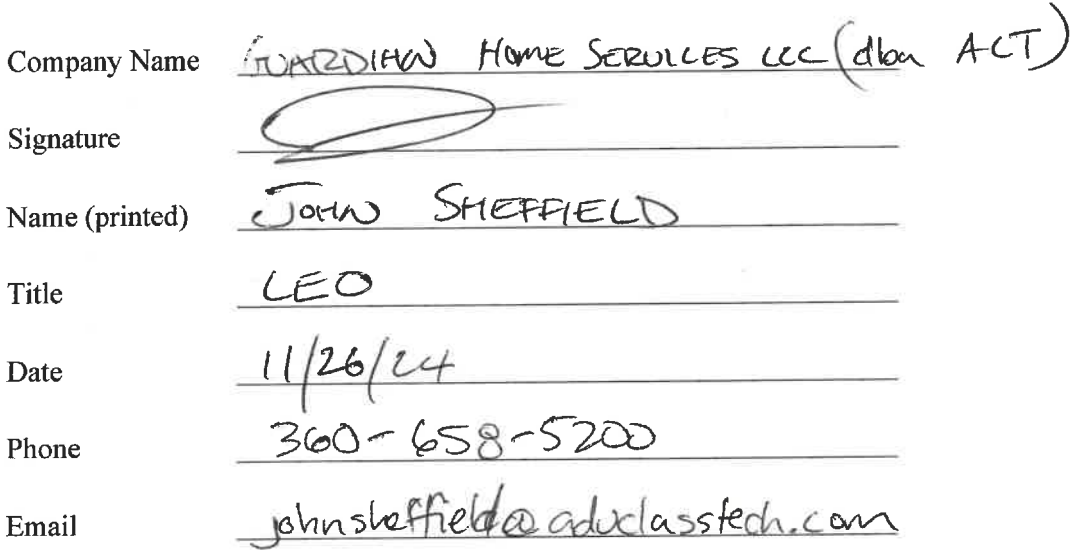 Company Name GUARDIAN HOME SERVICES LLC (dba ACT)
Signature
Name (printed) JOHN SHEFFIELD
Title CEO
Date 11/26/24
Phone 360-658-5200
Email johnsheffield@advclasstech.com